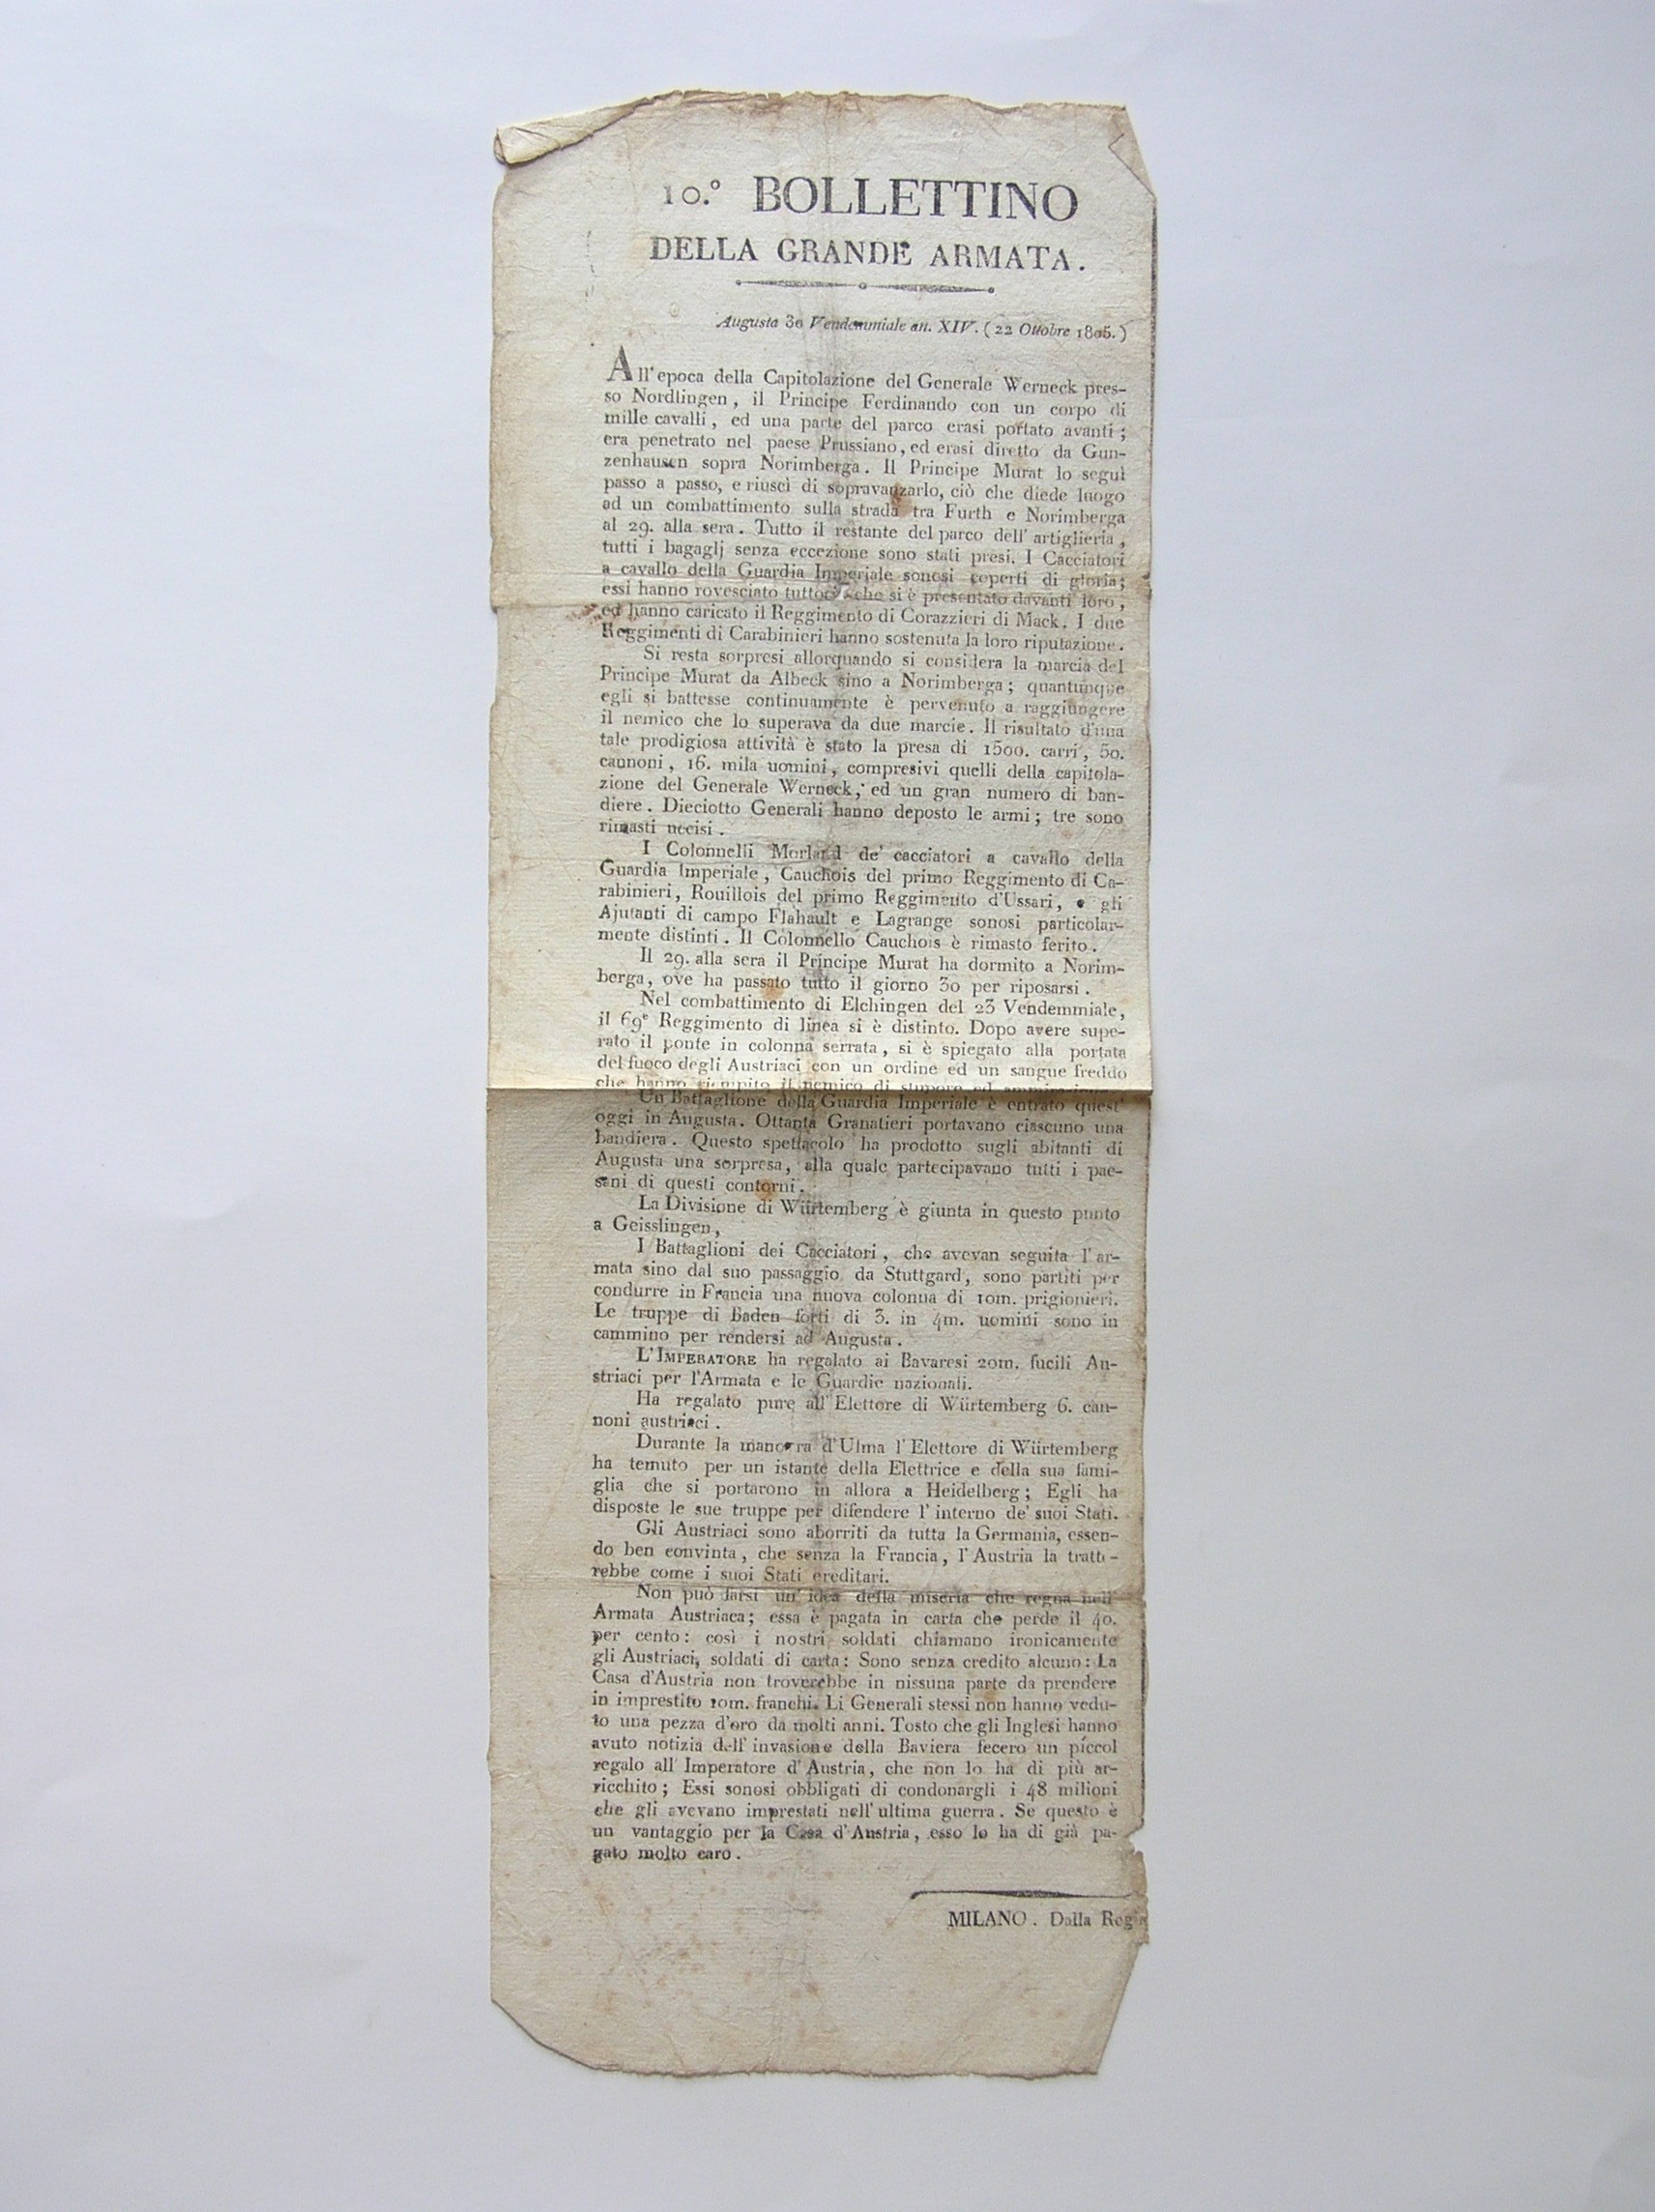 10.º BOLLETTINO
DELLA GRANDE ARMATA.
Augusta 30 Vendemmiale an. XIV. (22 Ottobre 1805.)
All'epoca della Capitolazione del Generale Werneck pres-
so Nordlingen, il Principe Ferdinando con un corpo di
mille cavalli, ed una parte del parco erasi portato avanti;
era penetrato nel paese Prussiano, ed erasi diretto da Gun-
zenhausen sopra Norimberga. Il Principe Murat lo seguì
passo a passo, e riuscì di sopravanzarlo, ciò che diede luogo
ad un combattimento sulla strada tra Furth e Norimberga
al 29. alla sera. Tutto il restante del parco dell' artiglieria,
tutti i bagaglj senza eccezione sono stati presi. I Cacciatori
a cavallo della Guardia Imperiale sonosi coperti di gloria;
essi hanno rovesciato tuttociò che si è presentato davanti loro,
ed hanno caricato il Reggimento di Corazzieri di Mack. I due
Reggimenti di Carabinieri hanno sostenuta la loro riputazione.
Si resta sorpresi allorquando si considera la marcia del
Principe Murat da Albeck sino a Norimberga; quantunque
egli si battesse continuamente è pervenuto a raggiungere
il nemico che lo superava da due marcie. Il risultato d'una
tale prodigiosa attività è stato la presa di 1500. carri, 50.
cannoni, 16. mila uomini, compresivi quelli della capitola-
zione del Generale Werneck, ed un gran numero di ban-
diere. Dieciotto Generali hanno deposto le armi; tre sono
rimasti uccisi.
I Colonnelli Morland de' cacciatori a cavallo della
Guardia Imperiale, Cauchois del primo Reggimento di Ca-
rabinieri, Rouillois del primo Reggimento d'Ussari, e gli
Ajutanti di campo Flahault e Lagrange sonosi particolar-
mente distinti. Il Colonnello Cauchois è rimasto ferito.
Il 29. alla sera il Principe Murat ha dormito a Norim-
berga, ove ha passato tutto il giorno 30 per riposarsi.
Nel combattimento di Elchingen del 23 Vendemmiale,
il 69e Reggimento di linea si è distinto. Dopo avere supe-
rato il ponte in colonna serrata, si è spiegato alla portata
del fuoco degli Austriaci con un ordine ed un sangue freddo
che hanno riempito il nemico di stupore ed ammirazione.
Un Battaglione della Guardia Imperiale è entrato quest'
oggi in Augusta. Ottanta Granatieri portavano ciascuno una
bandiera. Questo spettacolo ha prodotto sugli abitanti di
Augusta una sorpresa, alla quale partecipavano tutti i pae-
sani di questi contorni.
La Divisione di Würtemberg è giunta in questo punto
a Geisslingen,
I Battaglioni dei Cacciatori, che avevan seguita l'ar-
mata sino dal suo passaggio da Stuttgard, sono partiti per
condurre in Francia una nuova colonna di 10m. prigionieri.
Le truppe di Baden forti di 3. in 4m. uomini sono in
cammino per rendersi ad Augusta.
L'IMPERATORE ha regalato ai Bavaresi 20m. fucili Au-
striaci per l'Armata e le Guardie nazionali.
Ha regalato pure all' Elettore di Würtemberg 6. can-
noni austriaci.
Durante la manovra d'Ulma l'Elettore di Würtemberg
ha temuto per un istante della Elettrice e della sua fami-
glia che si portarono in allora a Heidelberg; Egli ha
disposte le sue truppe per difendere l' interno de' suoi Stati.
Gli Austriaci sono aborriti da tutta la Germania, essen-
do ben convinta, che senza la Francia, l'Austria la tratte-
rebbe come i suoi Stati ereditari.
Non può farsi un' idea della miseria che regna nell'
Armata Austriaca; essa è pagata in carta che perde il 40.
per cento: così i nostri soldati chiamano ironicamente
gli Austriaci, soldati di carta: Sono senza credito alcuno: La
Casa d'Austria non troverebbe in nissuna parte da prendere
in imprestito 10m. franchi. Li Generali stessi non hanno vedu-
to una pezza d'oro da molti anni. Tosto che gli Inglesi hanno
avuto notizia dell' invasione della Baviera fecero un piccol
regalo all' Imperatore d'Austria, che non lo ha di più ar-
ricchito; Essi sonosi obbligati di condonargli i 48 milioni
che gli avevano imprestati nell' ultima guerra. Se questo è
un vantaggio per la Casa d'Austria, esso lo ha di già pa-
gato molto caro.
MILANO. Dalla Regia